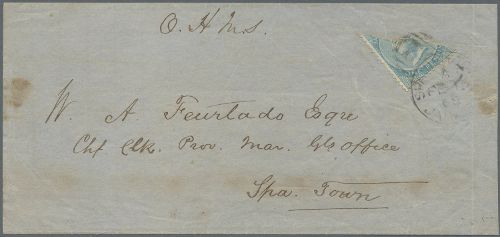 O. H. M. S.
W. A. Feurtado Esqre
Chf Clk. Prov. Mar. Gls Office
Spa. Town